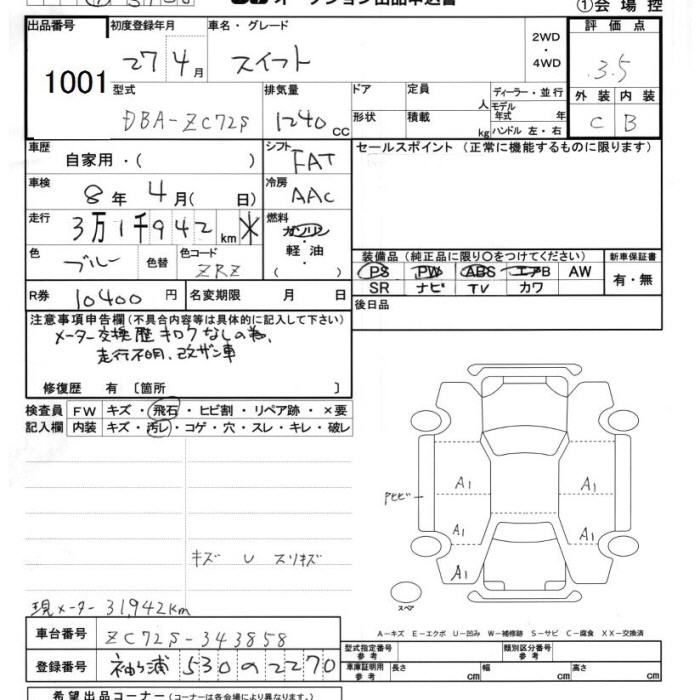 オークション出品申込書
①会場控
出品番号 初度登録年月 車名・グレード 評価点
1001 27年4月 スイフト 2WD・4WD 3.5
型式 排気量 ドア 定員 人 ディーラー・並行 外装 内装
DBA-ZC72S 1240cc 形状 積載 kg モデル年式 年 ハンドル 左・右 C B
車歴 自家用・( ) シフト FAT セールスポイント (正常に機能するものに限ります)
車検 8年4月( 日) 冷房 AAC
走行 3万1千942km ※ 燃料 ガソリン・軽油・( )
色 ブルー 色替 色コード ZRZ
装備品(純正品に限り○をつけてください) 新車保証書
PS PW ABS エアB AW 有・無
SR ナビ TV カワ
R券 10400円 名変期限 月 日 後日品
注意事項申告欄(不具合内容等は具体的に記入して下さい)
メーター交換歴キロクなしの為、
走行不明、改ザン車
修復歴 有〔箇所 〕
検査員 FW キズ・飛石・ヒビ割・リペア跡・×要
記入欄 内装 キズ・汚レ・コゲ・穴・スレ・キレ・破レ
A1 A1
Pヒビ
A1 A1
A1
キズ U スリキズ
スペア
現メーター 31,942km
A-キズ E-エクボ U-凹み W-補修跡 S-サビ C-腐食 XX-交換済
車台番号 ZC72S-343858 型式指定番号 参考 類別区分番号 参考
登録番号 袖ヶ浦 530 の 2270 車庫証明用 参考 長さ cm 幅 cm 高さ cm
希望出品コーナー(コーナーは各会場により異なります。)